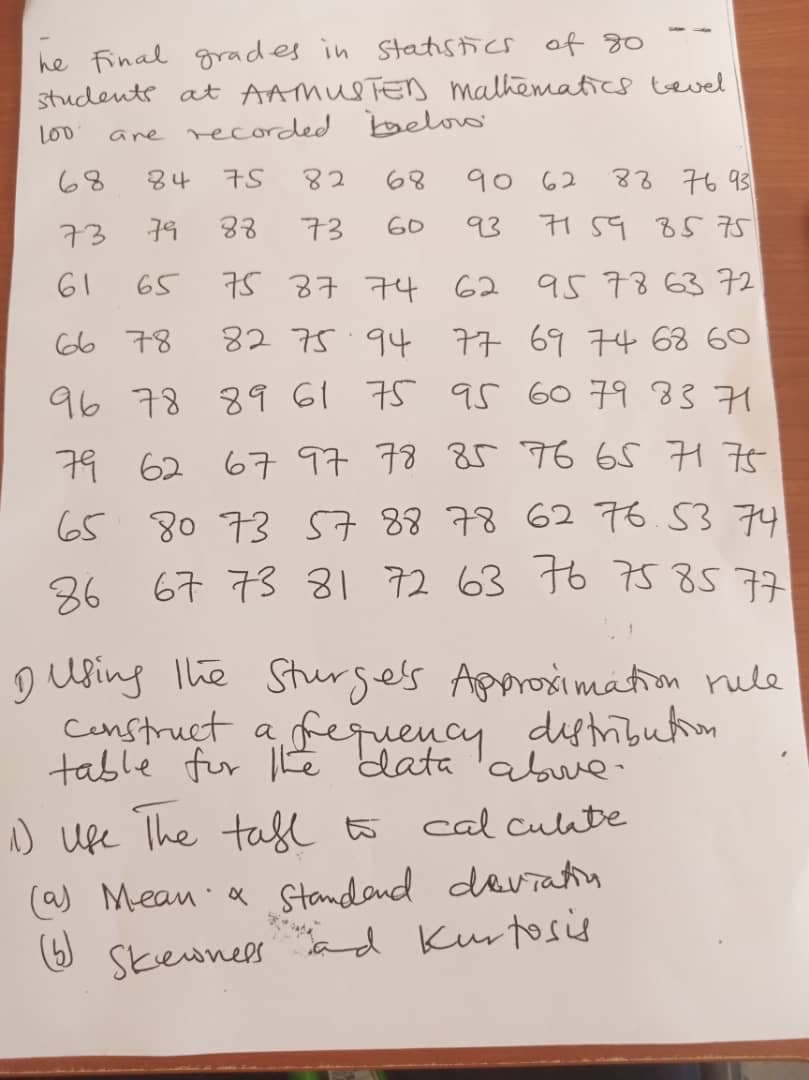 he Final grades in Statistics of 80 --
students at AAMUSTED Mathematics Level
100 are recorded below
68 84 75 82 68 90 62 88 76 93
73 79 88 73 60 93 71 59 85 75
61 65 75 87 74 62 95 78 63 72
66 78 82 75 94 77 69 74 68 60
96 78 89 61 75 95 60 79 83 71
79 62 67 97 78 85 76 65 71 75
65 80 73 57 88 78 62 76 53 74
86 67 73 81 72 63 76 75 85 77
1) Using the Sturge's Approximation rule
construct a frequency distribution
table for the data above.
1) Use The table to calculate
(a) Mean & Standard deviation
(b) Skewness and Kurtosis